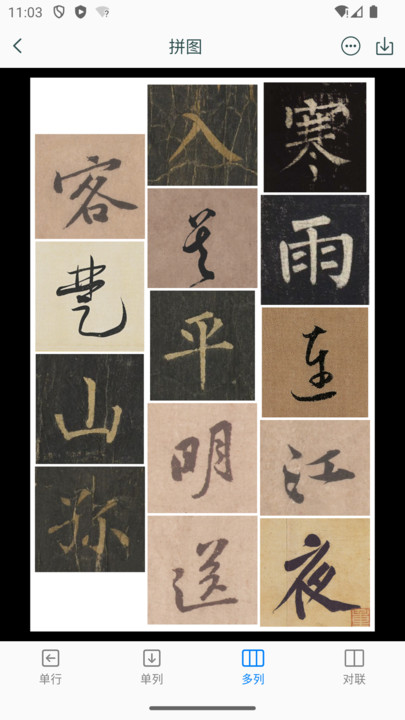 11:03
拼图
寒雨連江夜
入吴平明送
客楚山孤
单行
单列
多列
对联